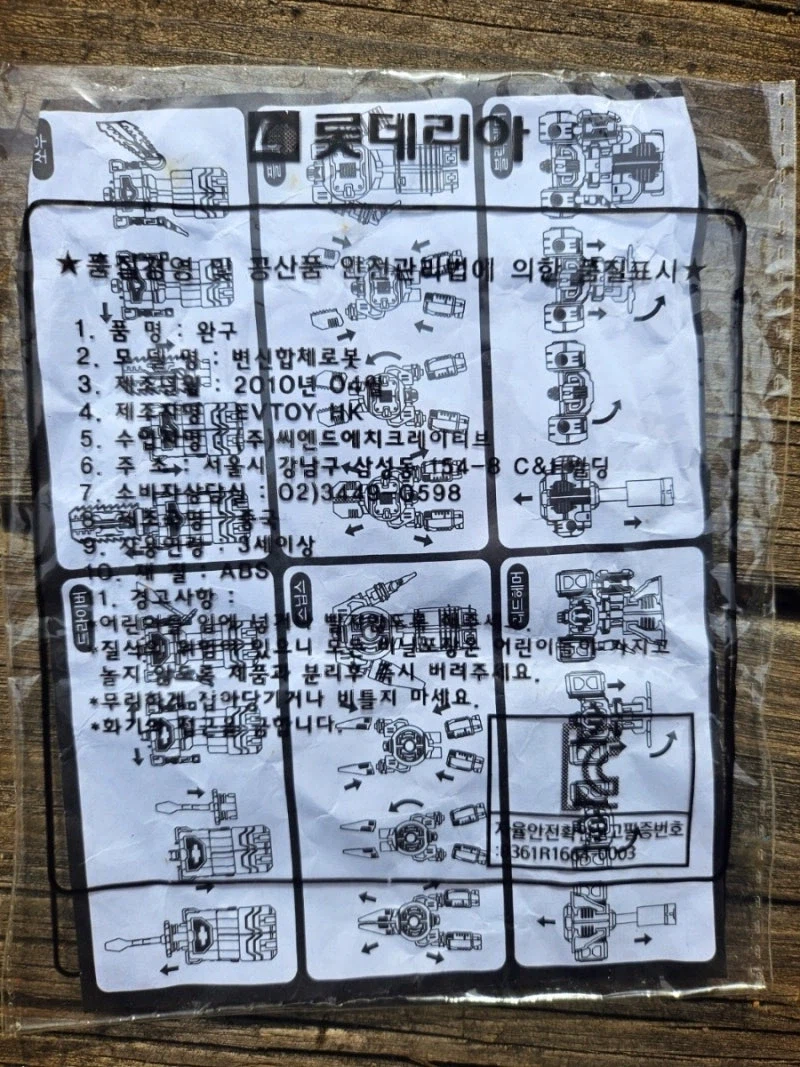 롯데리아
★품질경영 및 공산품 안전관리법에 의한 품질표시★
1. 품 명 : 완구
2. 모 델 명 : 변신합체로봇
3. 제조년월 : 2010년 04월
4. 제조자명 : EVTOY HK
5. 수입자명 : (주)씨엔드에치크레이티브
6. 주 소 : 서울시 강남구 삼성동 154-8 빌딩
7. 소비자상담실 : 02)3449-0598
8. 제조국명 : 중국
9. 사용연령 : 3세이상
10. 재 질 : ABS
11. 경고사항 :
*어린이들 입에 넣거나 빨지않도록 해주세요.
*질식의 위험이 있으니 모든 비닐포장은 어린이들이 가지고
놀지 않도록 제품과 분리후 즉시 버려주세요.
*무리하게 잡아당기거나 비틀지 마세요.
*화기의 접근을 금합니다.
쏘우
드라이버
스닙스
레드헤머
자율안전확인신고필증번호